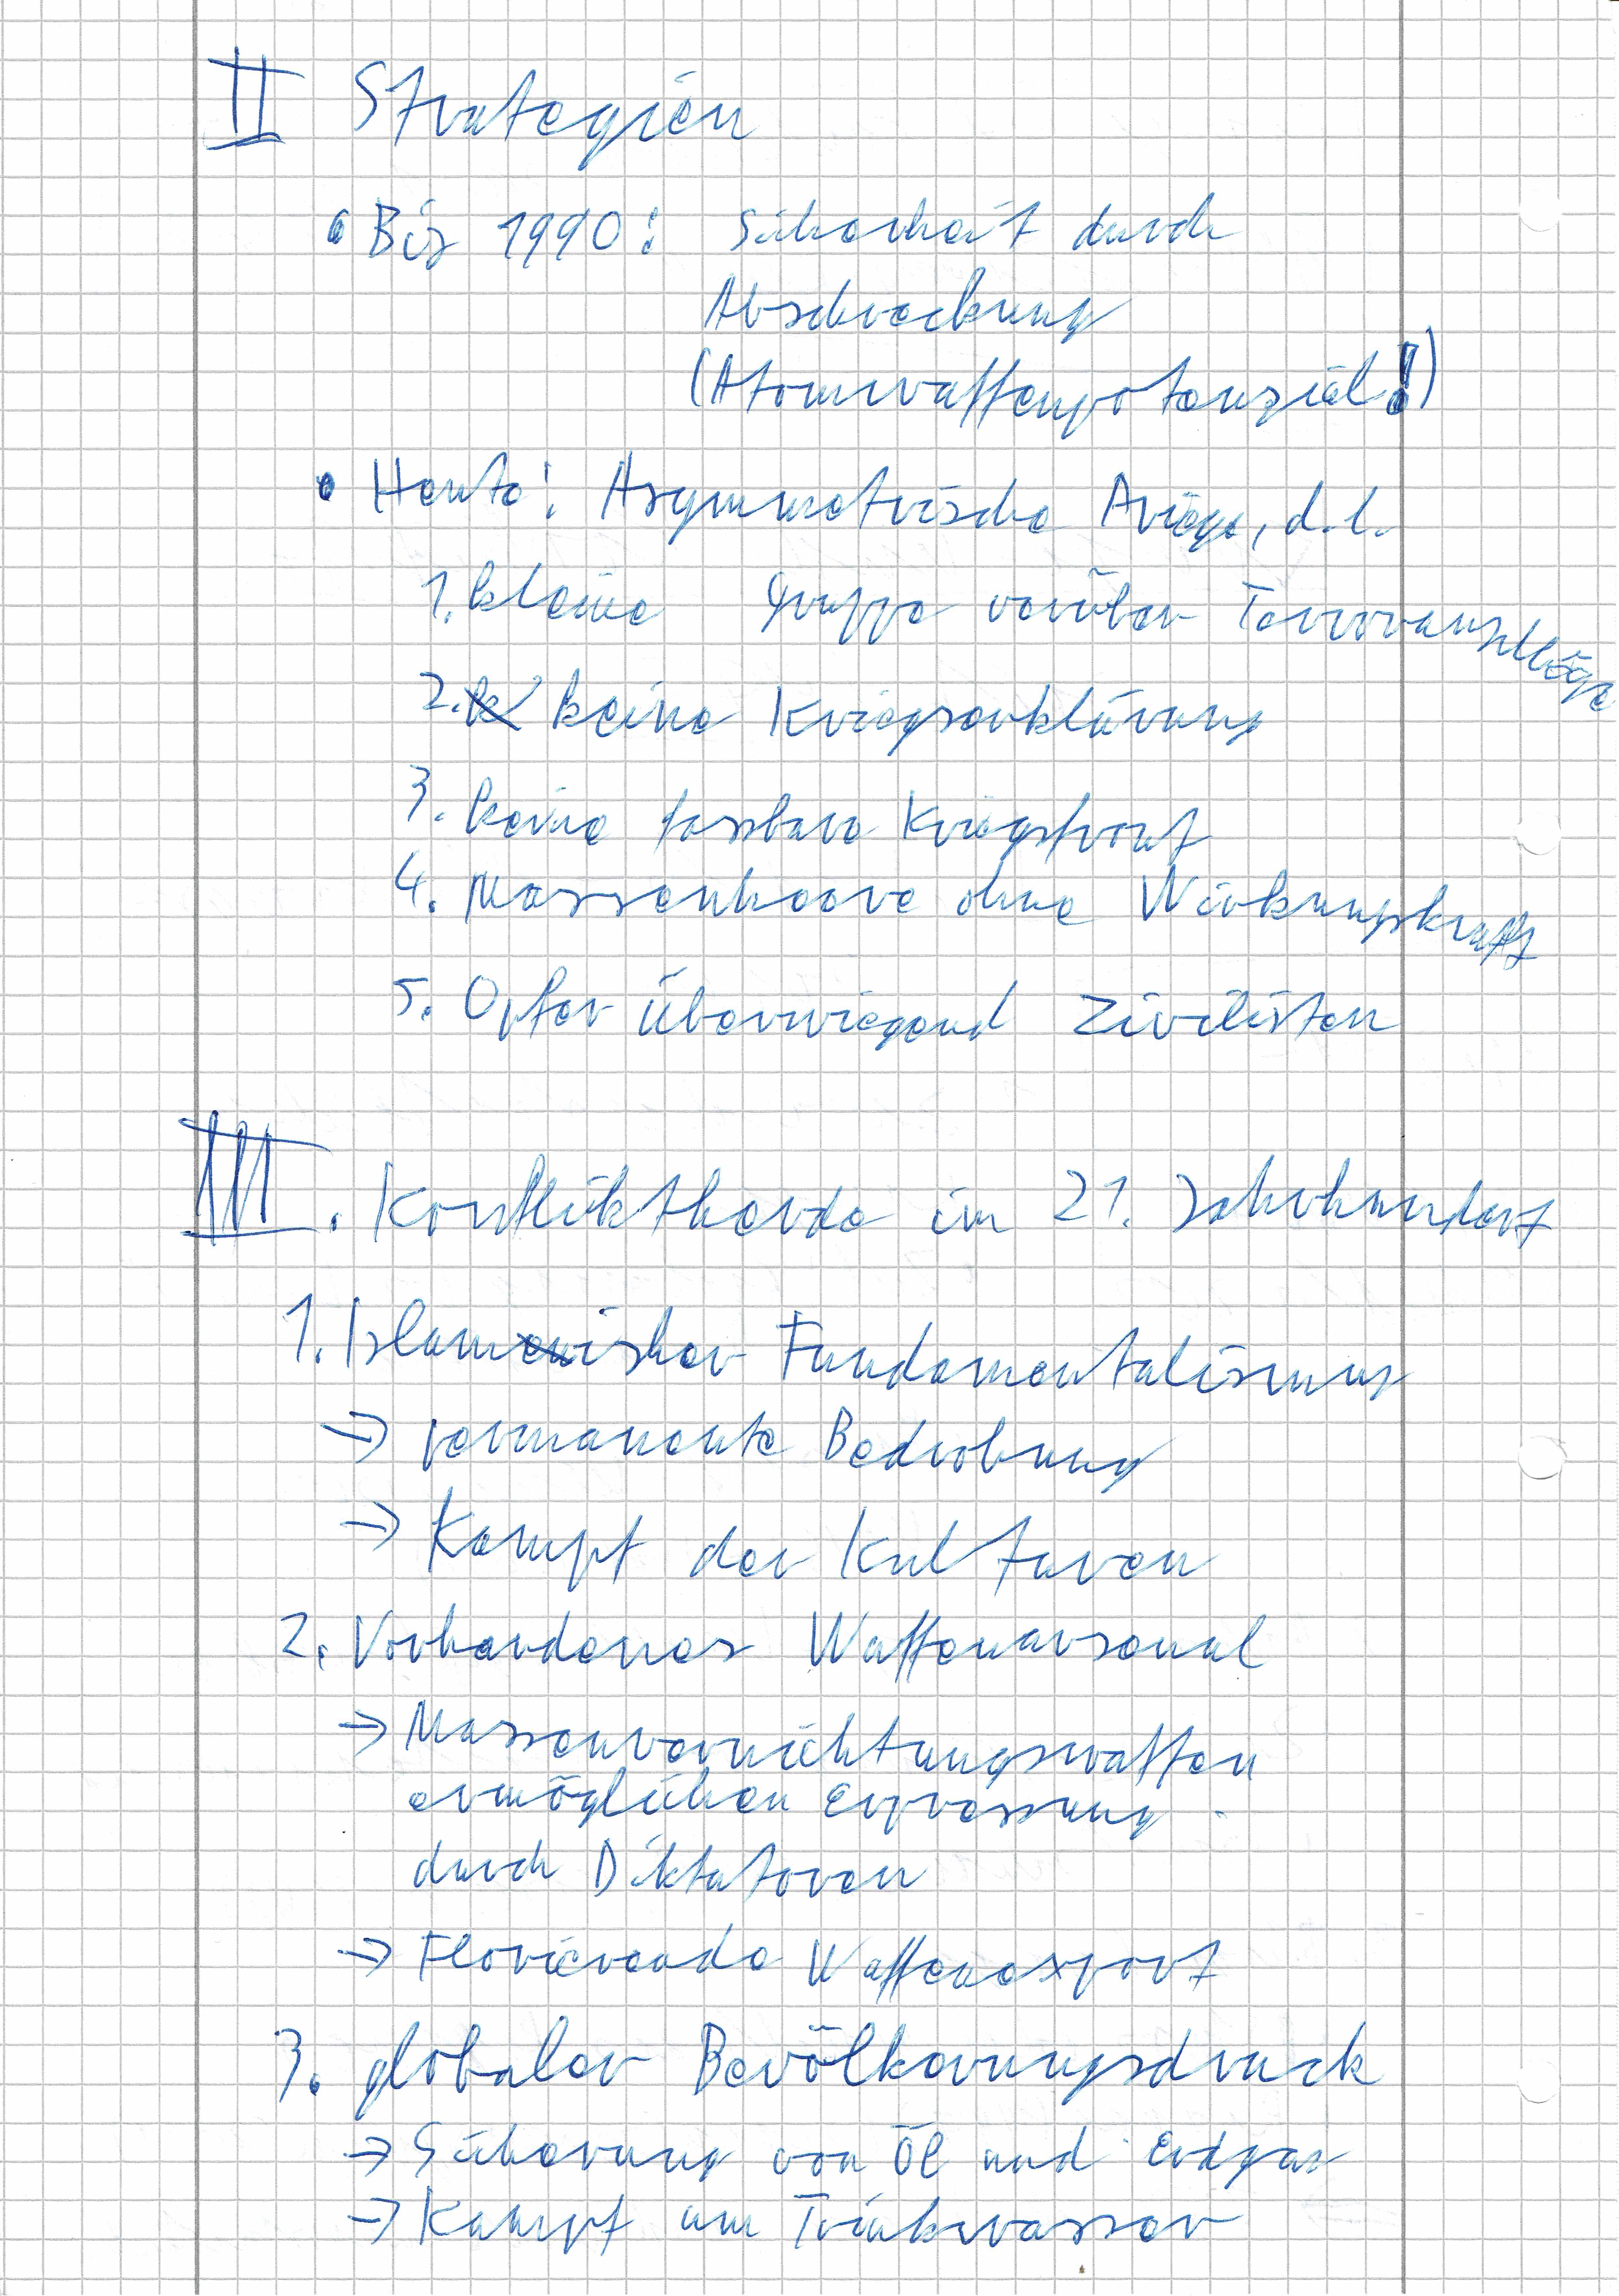 II Strategien
• Bis 1990: Sicherheit durch
Abschreckung
(Atomwaffenpotenzial!)
• Heute: Asymmetrische Kriege, d.h.
1. kleine Gruppe verüben Terroranschläge
2. keine Kriegserklärung
3. keine fassbare Kriegsfront
4. Massenheere ohne Wirkungskraft
5. Opfer überwiegend Zivilisten
III. Konfliktherde im 21. Jahrhundert
1. Islamischer Fundamentalismus
→ permanente Bedrohung
→ Kampf der Kulturen
2. Vorhandenes Waffenarsenal
→ Massenvernichtungswaffen
ermöglichen Erpressung
durch Diktatoren
→ Florierende Waffenexport
3. globaler Bevölkerungsdruck
→ Sicherung von Öl und Erdgas
→ Kampf um Trinkwasser